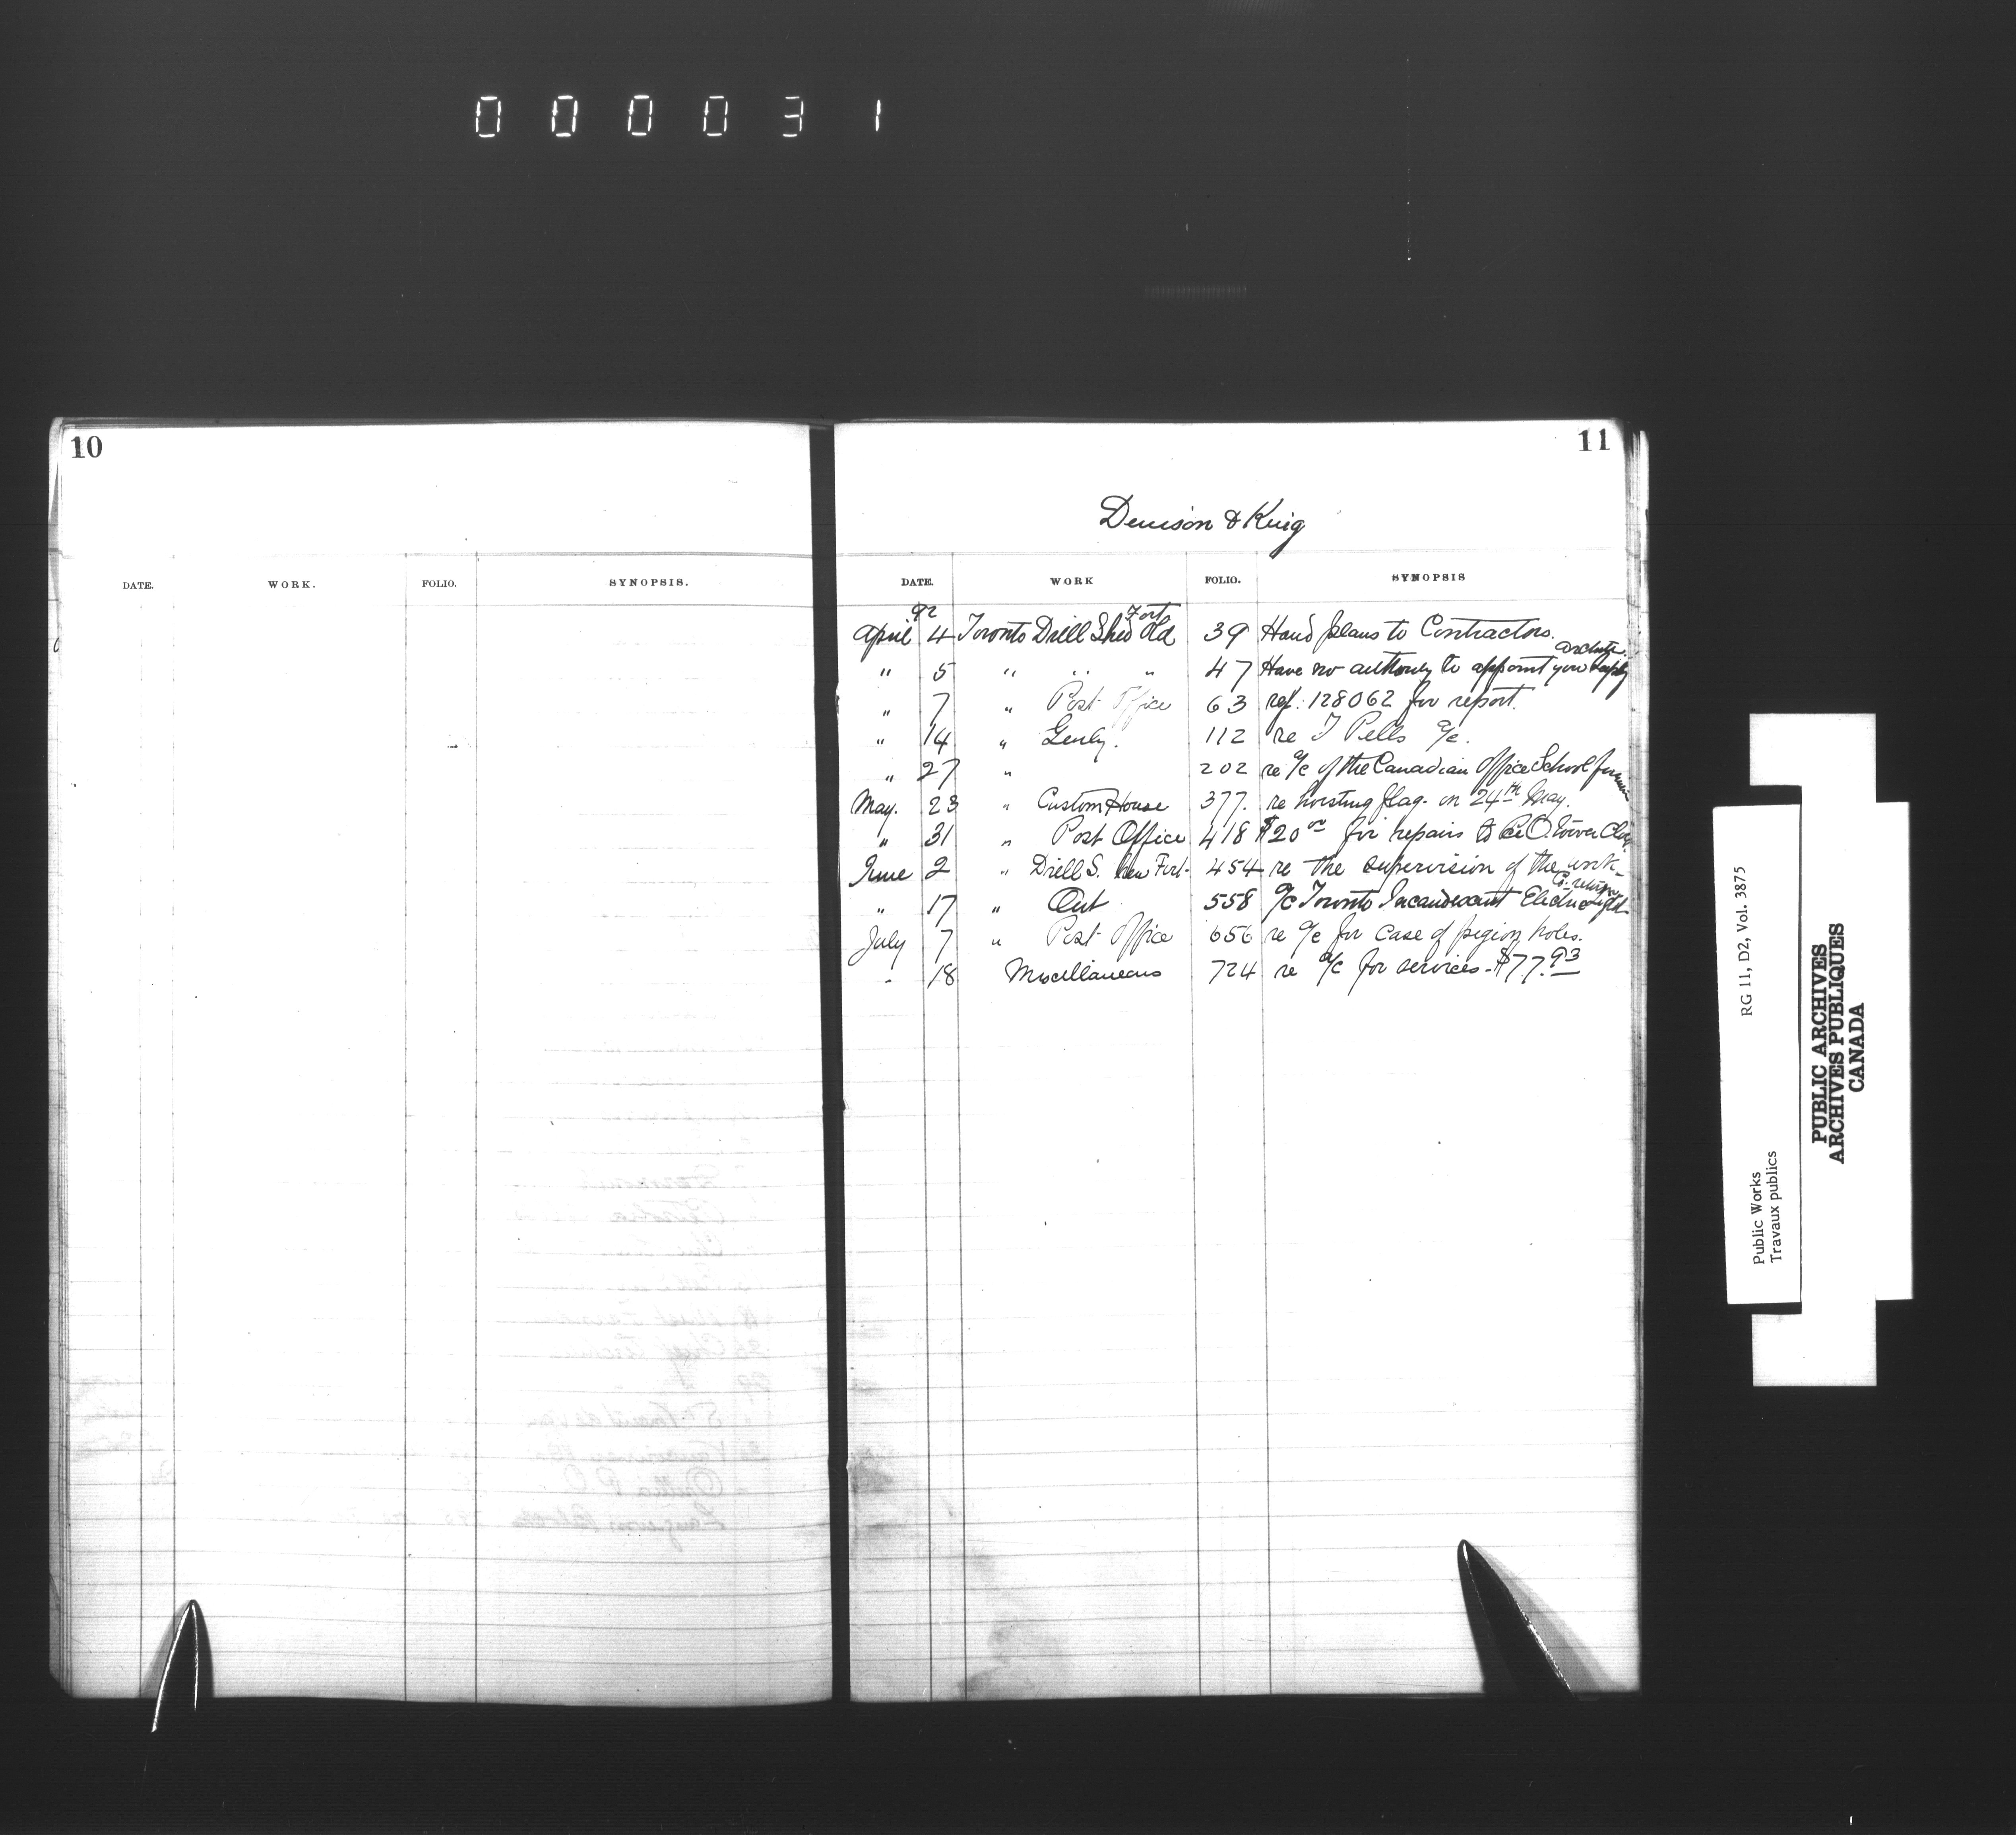 000031
10
DATE. WORK. FOLIO. SYNOPSIS.
11
Denison & King
DATE. WORK FOLIO. SYNOPSIS
92 Fort
April 4 Toronto Drill Shed Old 39 Hand plans to Contractors.
" 5 " " " 47 Have no authority to appoint you
" 7 " Post Office 63 ref: 128062 for report.
" 14 " Genly. 112 re J Pells a/c.
" 27 " 202 re a/c of the Canadian Office School
May. 23 " Custom House 377. re hoisting flag. on 24th May.
" 31 " Post Office 418 $20 00 for repairs to P.O. tower
June 2 " Drill S. New Fort- 454 re the supervision of the work-
" 17 " 558 a/c Toronto Incandescent Electric Light
July 7 " Post Office 656 re a/c for case of pigion holes.
" 18 Miscellaneous 724 re a/c for services - $77.93
Public Works
Travaux publics
RG 11, D2, Vol. 3875
PUBLIC ARCHIVES
ARCHIVES PUBLIQUES
CANADA